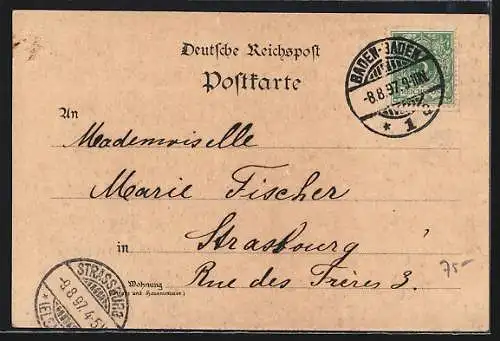 Deutsche Reichspost
Postkarte
BADEN-BADEN
-8.8.97. 9-10N.
* 1 a
An
Mademoiselle
Marie Fischer
in
Strasbourg
Wohnung
Rue des Frères 3.
(Straße und Hausnummer)
75-
STRASSBURG
-9.8.97. 4-5
* (ELS.